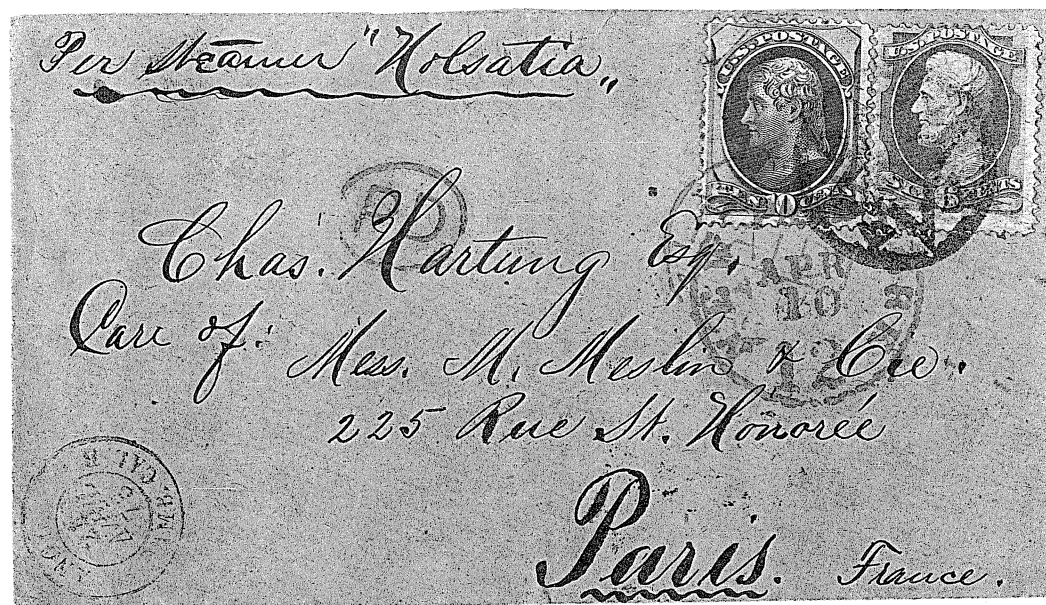 Per Steamer "Holsatia"
U.S. POSTAGE
U.S. POSTAGE
10
6 CENTS
PD
Chas. Hartung Esq.
APR
10
12
Care of:
Mess. M. Meslin & Cie.
225 Rue St. Honorée
Paris. France.